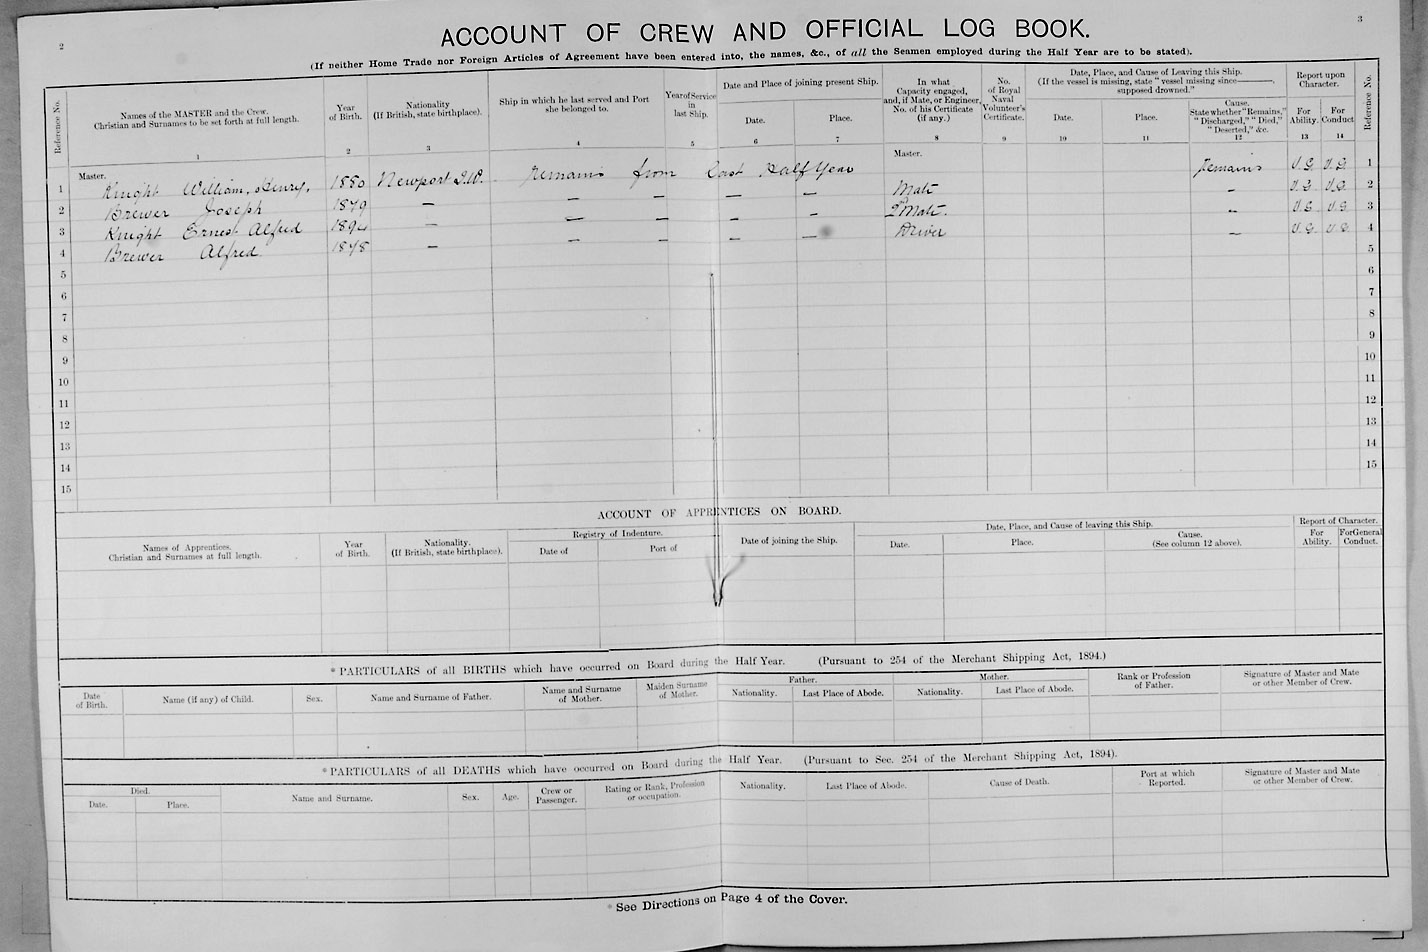 2
3
ACCOUNT OF CREW AND OFFICIAL LOG BOOK.
(If neither Home Trade nor Foreign Articles of Agreement have been entered into, the names, &c., of all the Seamen employed during the Half Year are to be stated).
Reference No. Names of the MASTER and the Crew. Christian and Surnames to be set forth at full length. Year of Birth. Nationality (If British, state birthplace). Ship in which he last served and Port she belonged to. Year of Service in last Ship. Date and Place of joining present Ship. Date. Place. In what Capacity engaged, and, if Mate, or Engineer, No. of his Certificate (if any.) No. of Royal Naval Volunteer's Certificate. Date, Place, and Cause of Leaving this Ship. (If the vessel is missing, state "vessel missing since———, supposed drowned." Date. Place. Cause. State whether "Remains," "Discharged," "Died," "Deserted," &c. Report upon Character. For Ability. For Conduct Reference No.
1 2 3 4 5 6 7 8 9 10 11 12 13 14
Master. Master.
1 Knight William, Henry, 1880 Newport I.W. remains from last Half Year remains V.G. V.G. 1
2 Brewer Joseph 1879 — — — — — Mate — V.G. V.G. 2
3 Knight Ernest Alfred 1894 — — — — — 2nd Mate. — V.G. V.G. 3
4 Brewer Alfred 1878 — — — — — Driver — V.G. V.G. 4
5 5
6 6
7 7
8 8
9 9
10 10
11 11
12 12
13 13
14 14
15 15
ACCOUNT OF APPRENTICES ON BOARD.
Names of Apprentices. Christian and Surnames at full length. Year of Birth. Nationality. (If British, state birthplace). Registry of Indenture. Date of Port of Date of joining the Ship. Date, Place, and Cause of leaving this Ship. Date. Place. Cause. (See column 12 above). Report of Character. For Ability. For General Conduct.
*PARTICULARS of all BIRTHS which have occurred on Board during the Half Year. (Pursuant to 254 of the Merchant Shipping Act, 1894.)
Date of Birth. Name (if any) of Child. Sex. Name and Surname of Father. Name and Surname of Mother. Maiden Surname of Mother. Father. Nationality. Last Place of Abode. Mother. Nationality. Last Place of Abode. Rank or Profession of Father. Signature of Master and Mate or other Member of Crew.
*PARTICULARS of all DEATHS which have occurred on Board during the Half Year. (Pursuant to Sec. 254 of the Merchant Shipping Act, 1894).
Died. Date. Place. Name and Surname. Sex. Age. Crew or Passenger. Rating or Rank, Profession or occupation. Nationality. Last Place of Abode. Cause of Death. Port at which Reported. Signature of Master and Mate or other Member of Crew.
* See Directions on Page 4 of the Cover.